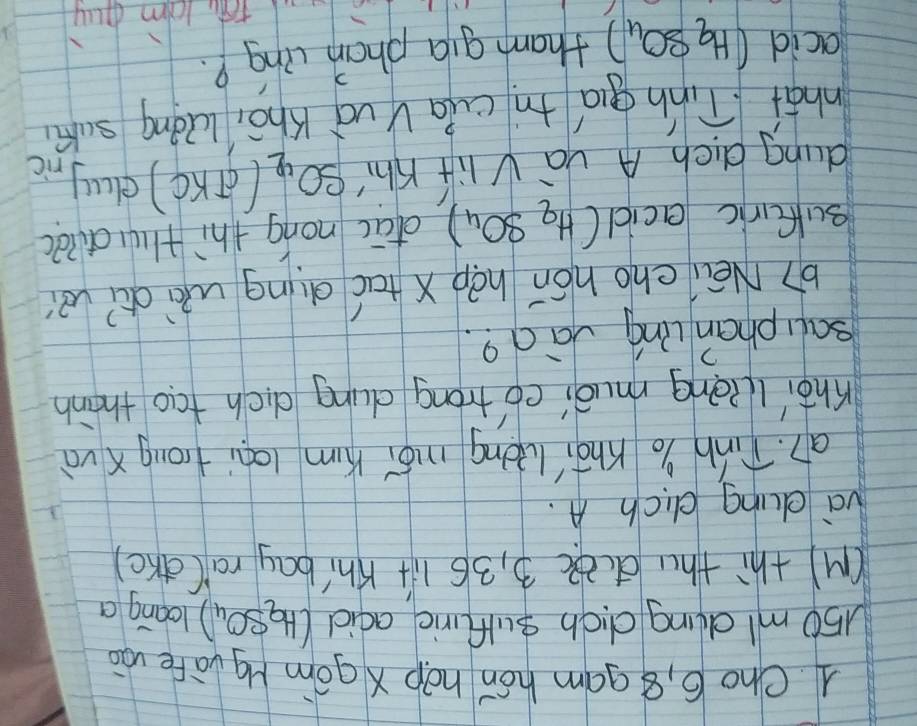 1. Cho 6,8 gam hỗn hợp X gồm Mg và Fe vào
150 ml dung dịch sulfuric acid (H2SO4) loãng a
(M) thì thu được 3,36 lít khí bay ra (đkc)
và dung dịch A.
a) Tính % khối lượng mỗi kim loại trong X và
khối lượng muối có trong dung dịch tạo thành
sau phản ứng và a?
b) Nếu cho hỗn hợp X tác dụng vừa đủ với
sulfuric acid (H2SO4) đặc nóng thì thu được
dung dịch A và V lít khí SO2 (đkc) duy
nhất. Tính giá trị của V và khối lượng sulfuric
acid (H2SO4) tham gia phản ứng?
làm quỳ